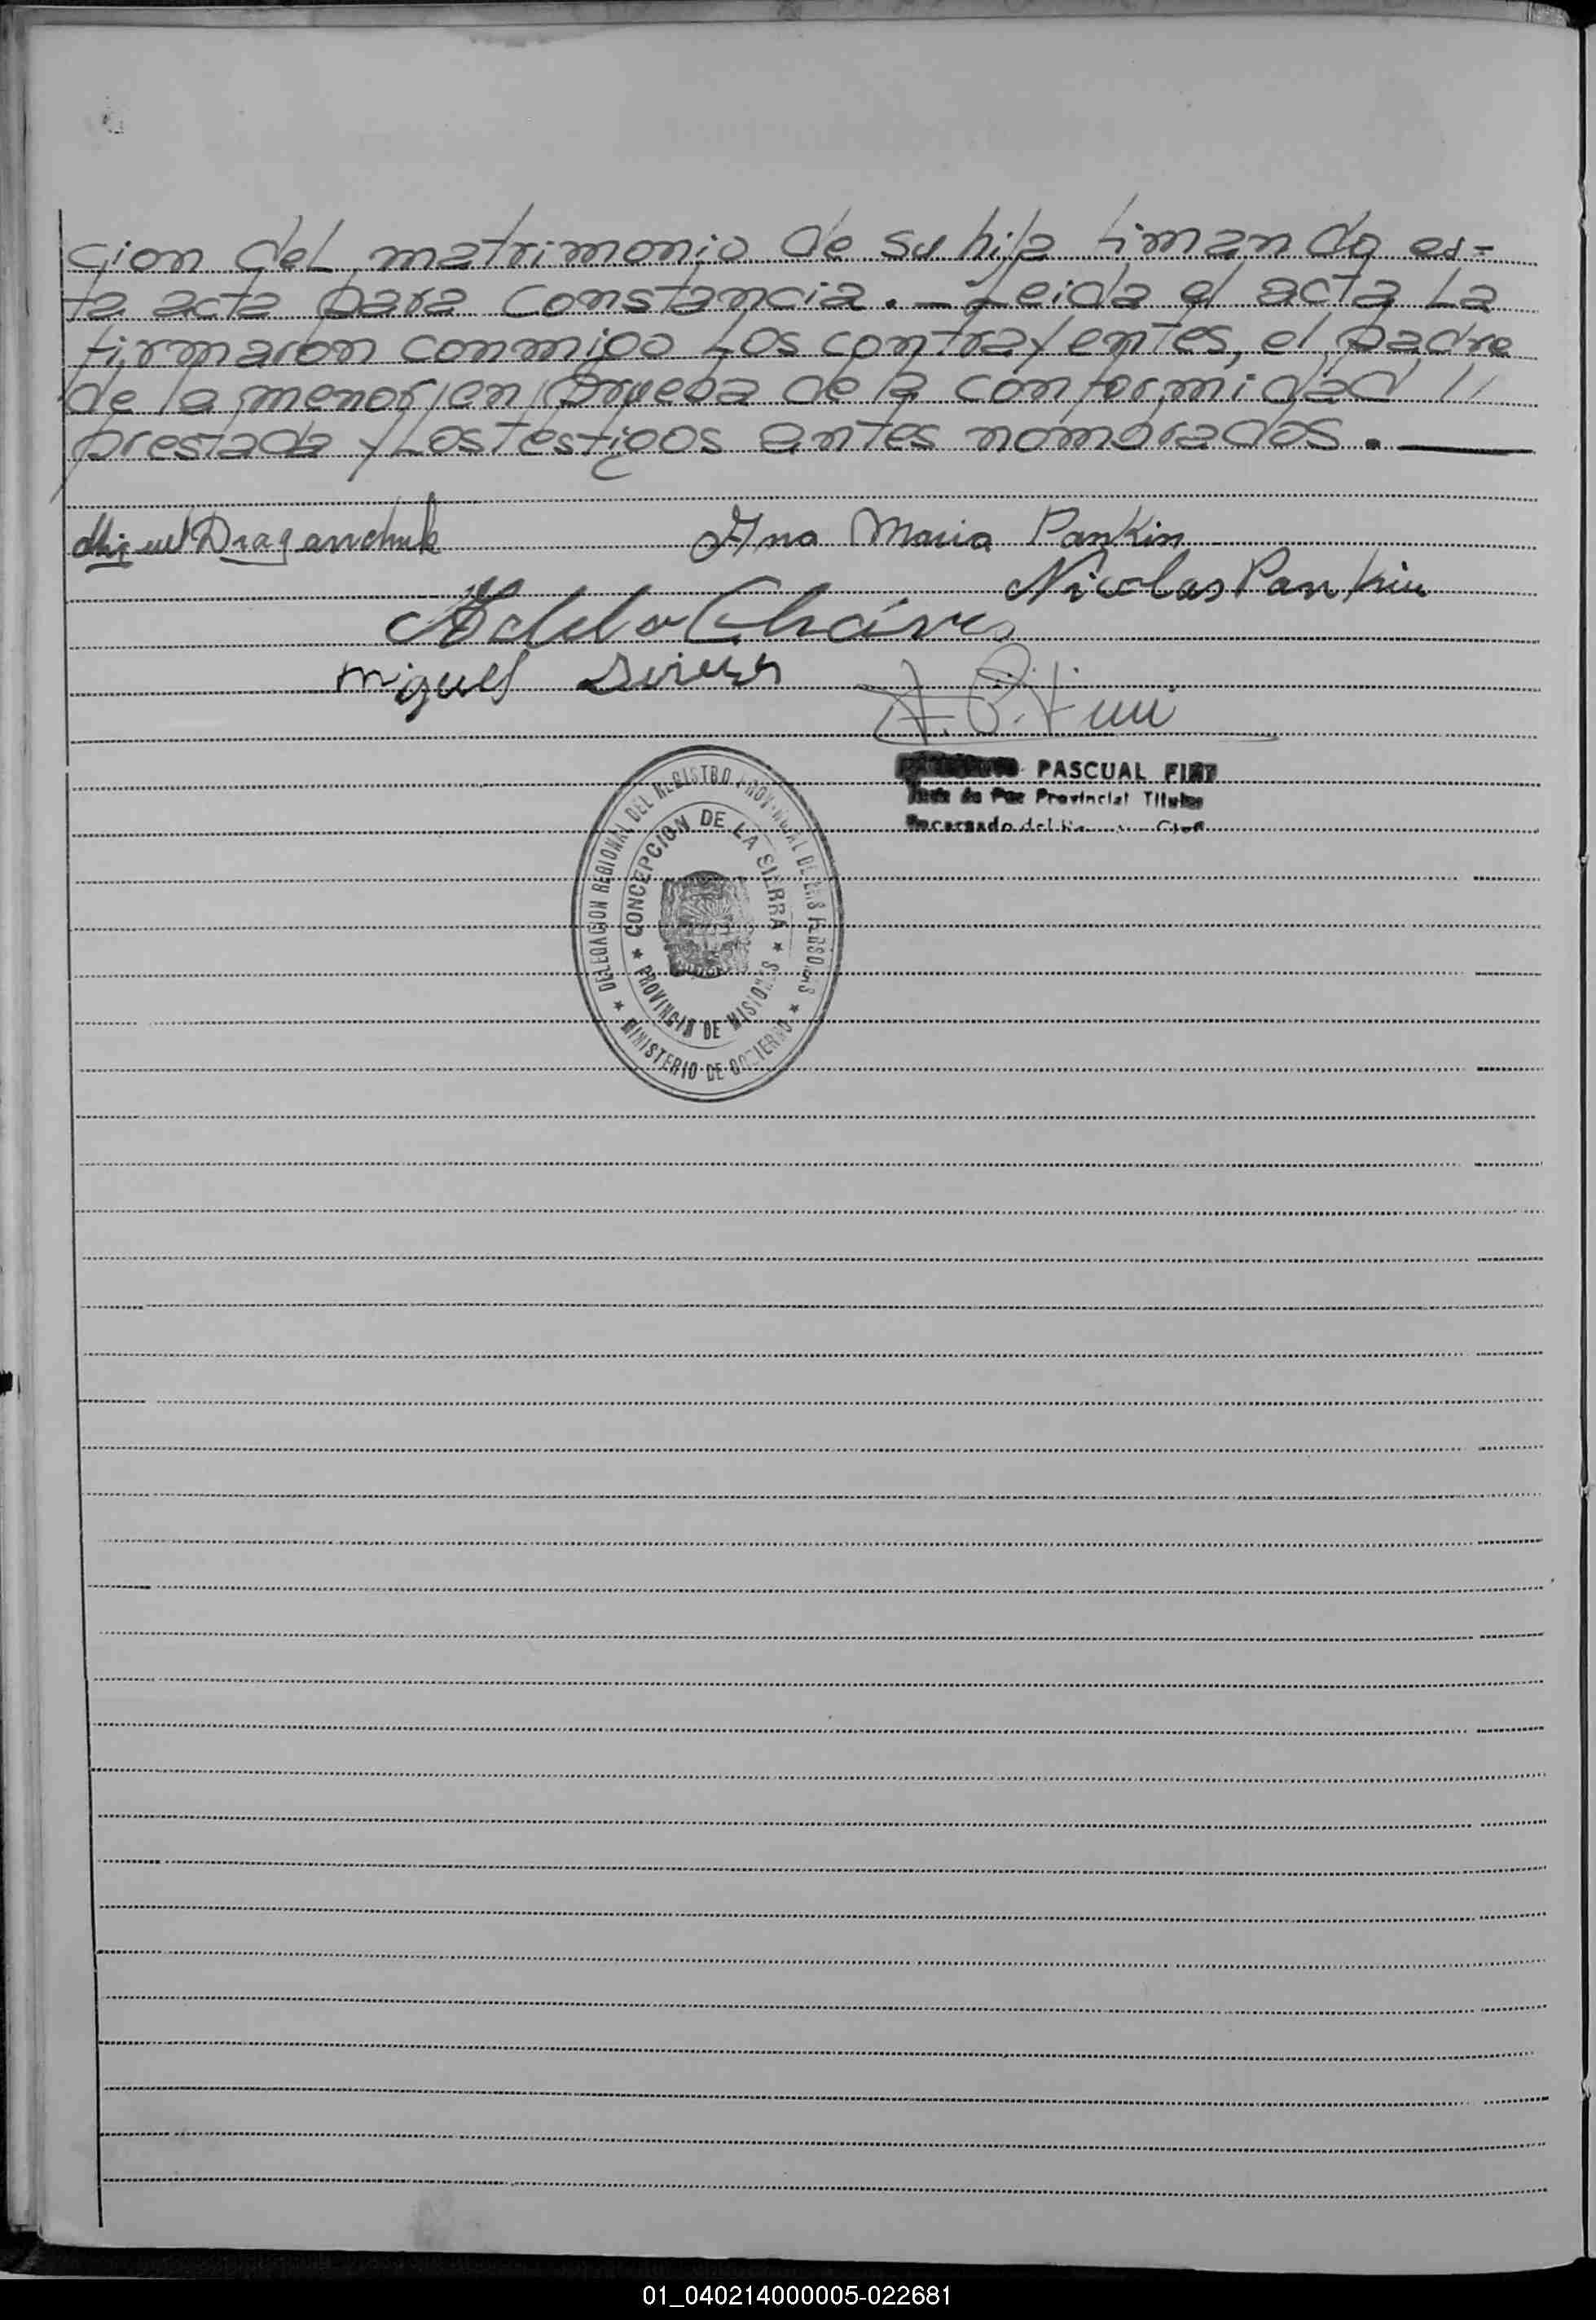 cion del matrimonio de su hija firmando es=
ta acta para constancia. — Leida el acta La
firmaron conmigo Los contrayentes, el padre
de la menor en prueba de la conformidad //
prestada y Los testigos antes nombrados. —
Miguel Draganchuk
Ana Maria Pankin
Nicolas Pankiu
Adela Cháves
miguel
PASCUAL
Juez de Paz Provincial Titular
Encargado del
DELEGACION REGIONAL DEL REGISTRO PROVINCIAL DE LAS PERSONAS
CONCEPCION DE LA SIERRA
PROVINCIA DE MISIONES
MINISTERIO DE GOBIERNO
01_040214000005-022681